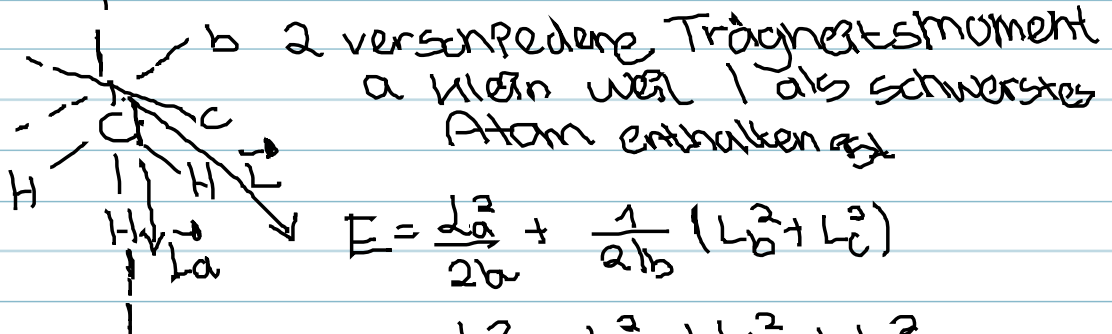 b 2 verschiedene Trägheitsmoment
a klein weil I als schwerstes
C C Atom enthalten ist
H H L
H La
E = La²/2Ia + 1/2Ib (Lb² + Lc²)